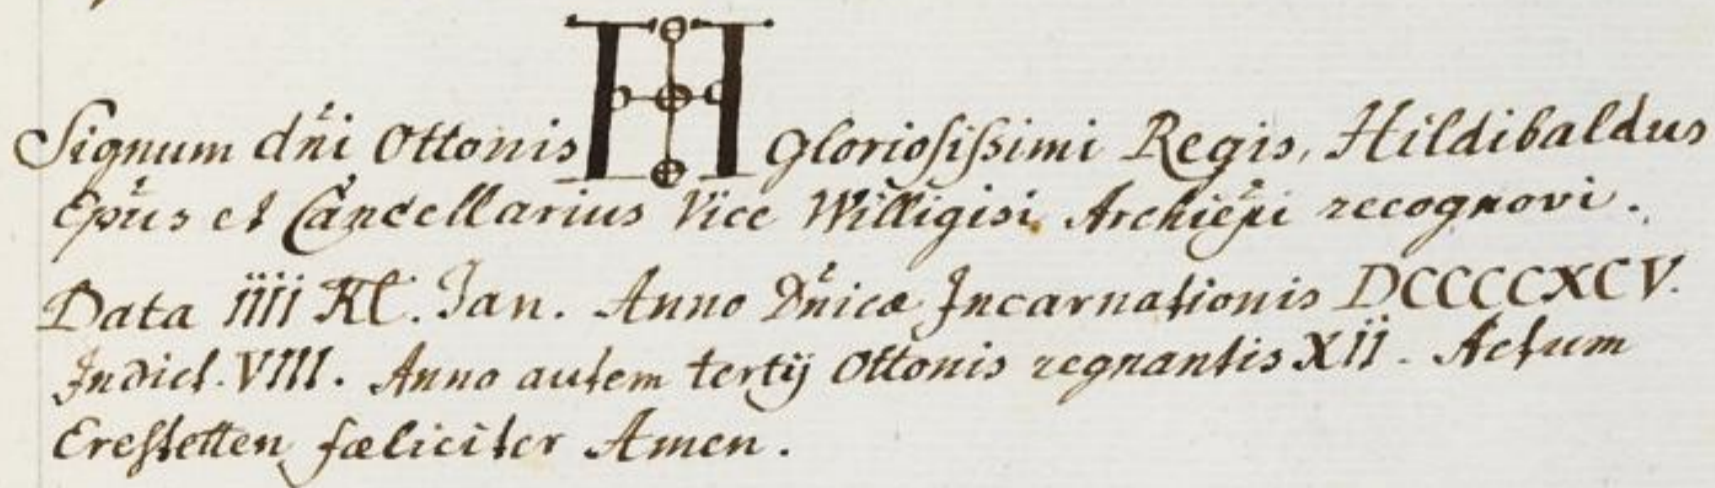 Signum dn̄i Ottonis gloriosissimi Regis, Hildibaldus
Epūs et Cancellarius Vice Willigisi Archiep̄i recognovi.
Data IIII Kl. Jan. Anno Dn̄icæ Incarnationis DCCCCXCV.
Indict. VIII. Anno autem tertij Ottonis regnantis XII. Actum
Erestetten fœliciter Amen.